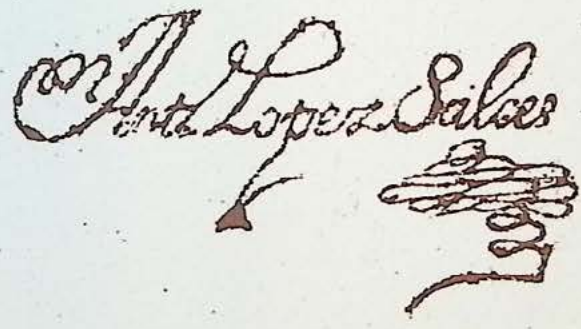 Antᵒ Lopez Salces